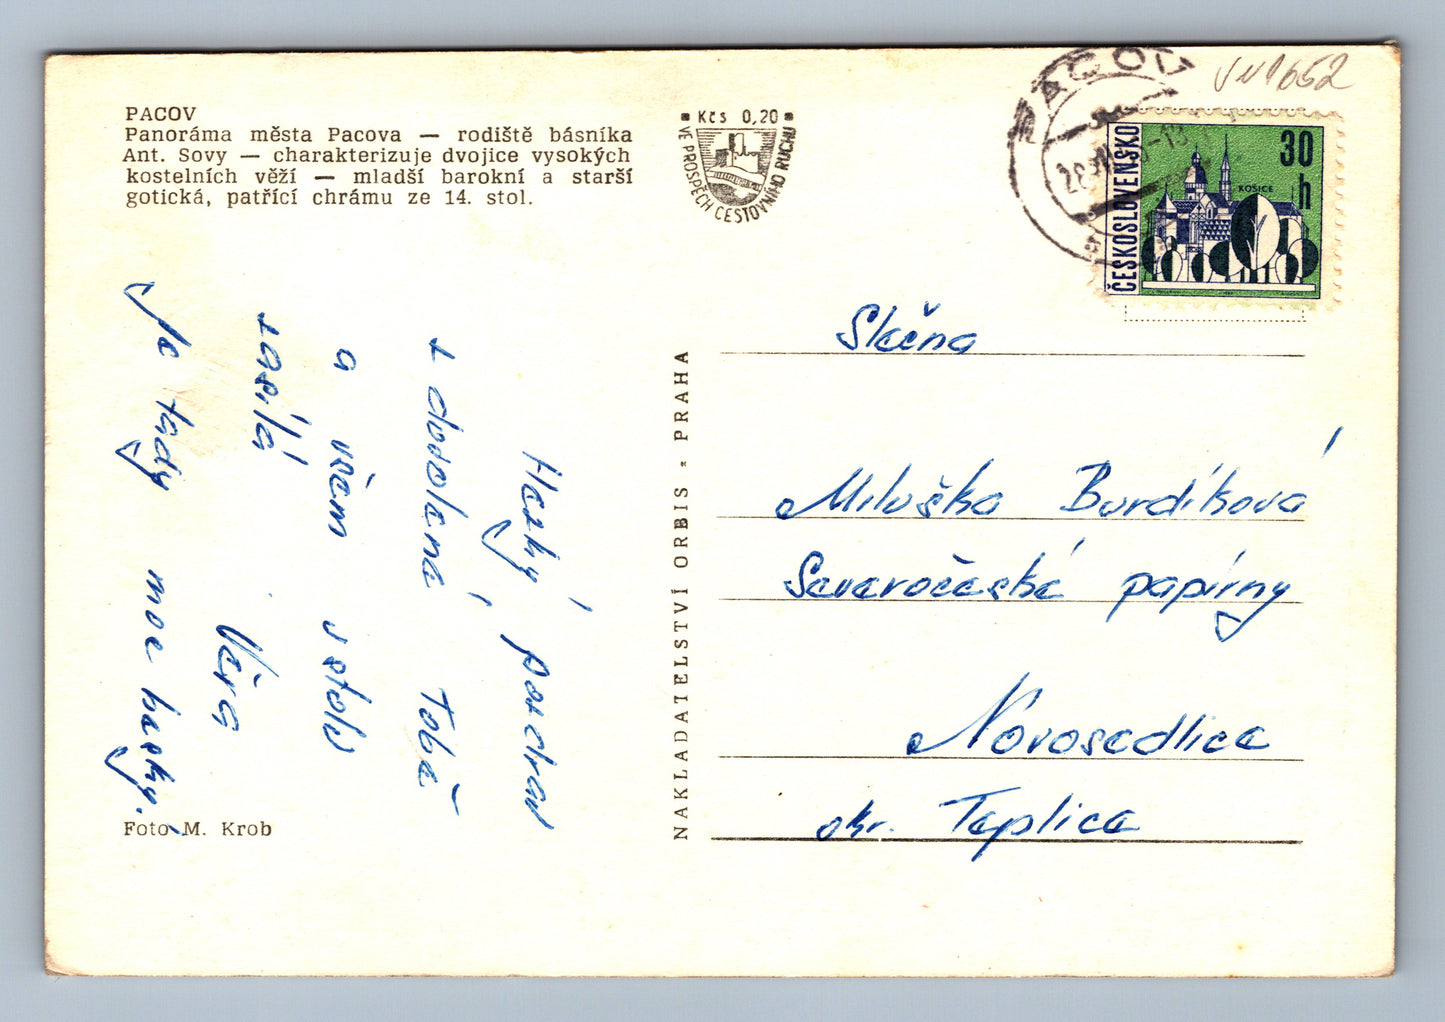 PACOV
Panoráma města Pacova — rodiště básníka
Ant. Sovy — charakterizuje dvojice vysokých
kostelních věží — mladší barokní a starší
gotická, patřící chrámu ze 14. stol.
Kčs 0,20
VE PROSPĚCH CESTOVNÍHO RUCHU
PACOV
ČESKOSLOVENSKO
30 h
KOŠICE
Hezký pozdrav
z dovolené Tobě
a všem v stolu
zasílá
Věra
Je tady moc hezky.
Foto M. Krob
NAKLADATELSTVÍ ORBIS - PRAHA
Slečna
Miluška Burdíková
Severočeské papírny
Novosedlice
okr. Teplice